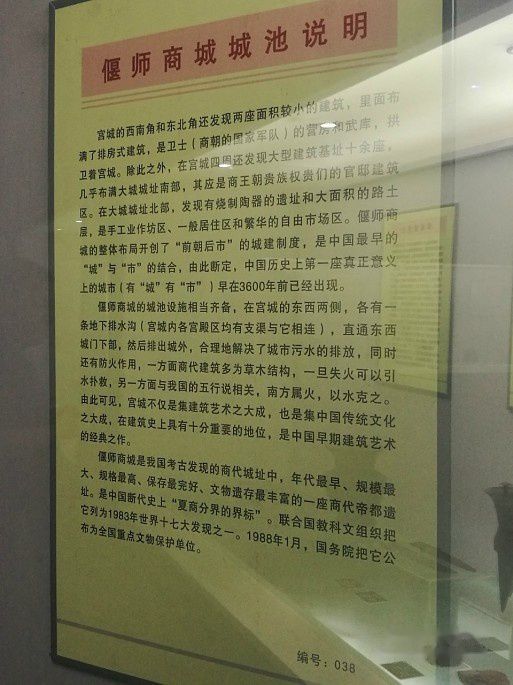 偃师商城城池说明
宫城的西南角和东北角还发现两座面积较小的建筑，里面布
满了排房式建筑，是卫士（商朝的国家军队）的营房和武库，拱
卫着宫城。除此之外，在宫城四周还发现大型建筑基址十余座，
几乎布满大城城址南部，其应是商王朝贵族权贵们的官邸建筑
区。在大城城址北部，发现有烧制陶器的遗址和大面积的路土
层，是手工业作坊区、一般居住区和繁华的自由市场区。偃师商
城的整体布局开创了“前朝后市”的城建制度，是中国最早的
“城”与“市”的结合，由此断定，中国历史上第一座真正意义
上的城市（有“城”有“市”）早在3600年前已经出现。
偃师商城的城池设施相当齐备，在宫城的东西两侧，各有一
条地下排水沟（宫城内各宫殿区均有支渠与它相连），直通东西
城门下部，然后排出城外，合理地解决了城市污水的排放，同时
还有防火作用，一方面商代建筑多为草木结构，一旦失火可以引
水扑救，另一方面与我国的五行说相关，南方属火，以水克之。
由此可见，宫城不仅是集建筑艺术之大成，也是集中国传统文化
之大成，在建筑史上具有十分重要的地位，是中国早期建筑艺术
的经典之作。
偃师商城是我国考古发现的商代城址中，年代最早、规模最
大、规格最高、保存最完好、文物遗存最丰富的一座商代帝都遗
址。是中国断代史上“夏商分界的界标”。联合国教科文组织把
它列为1983年世界十七大发现之一。1988年1月，国务院把它公
布为全国重点文物保护单位。
编号：038